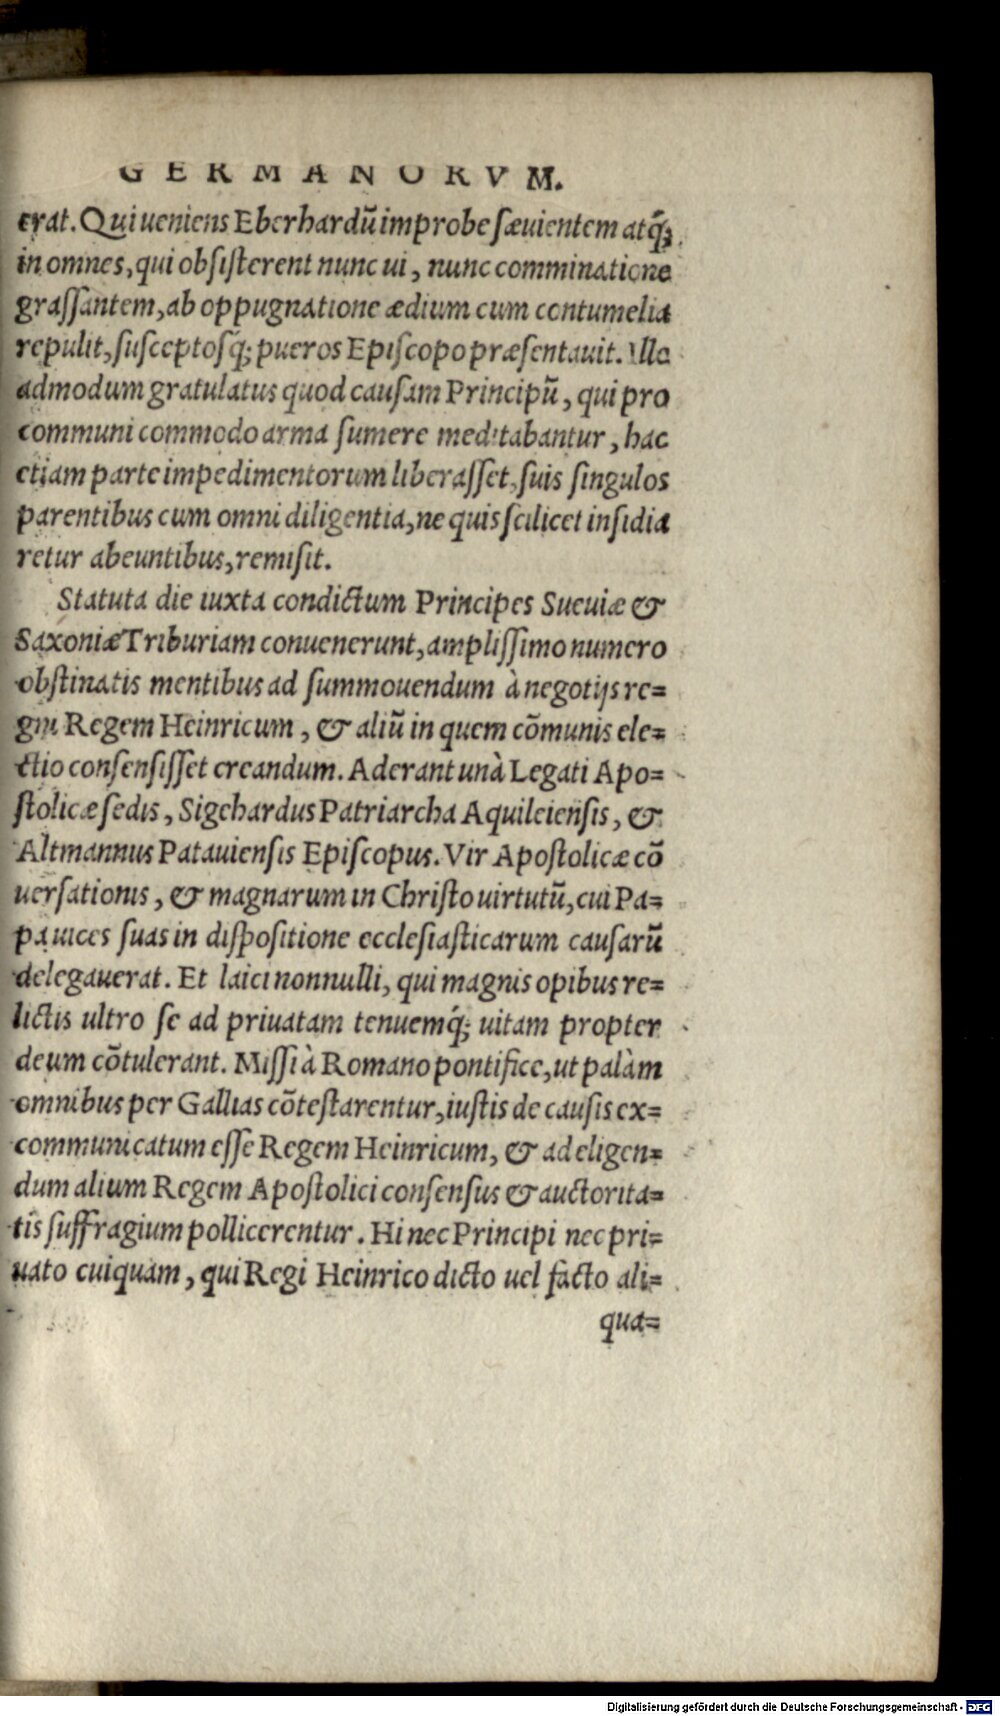 GERMANORVM.
erat. Qui ueniens Eberhardū improbe sæuientem atq́;
in omnes, qui obsisterent nunc ui, nunc comminatione
grassantem, ab oppugnatione ædium cum contumelia
repulit, susceptosq́; pueros Episcopo præsentauit. Ille
admodum gratulatus quod causam Principū, qui pro
communi commodo arma sumere meditabantur, hac
etiam parte impedimentorum liberasset, suis singulos
parentibus cum omni diligentia, ne quis scilicet insidia
retur abeuntibus, remisit.
Statuta die iuxta condictum Principes Sueuiæ &
Saxoniæ Triburiam conuenerunt, amplissimo numero
obstinatis mentibus ad summouendum à negotijs re=
gni Regem Heinricum, & aliū in quem cōmunis ele=
ctio consensisset creandum. Aderant unà Legati Apo=
stolicæ sedis, Sigehardus Patriarcha Aquileiensis, &
Altmannus Patauiensis Episcopus. Vir Apostolicæ cō
uersationis, & magnarum in Christo uirtutū, cui Pa=
pa uices suas in dispositione ecclesiasticarum causarū
delegauerat. Et laici nonnulli, qui magnis opibus re=
lictis ultro se ad priuatam tenuemq́; uitam propter
deum cōtulerant. Missi à Romano pontifice, ut palàm
omnibus per Gallias cōtestarentur, iustis de causis ex=
communicatum esse Regem Heinricum, & ad eligen=
dum alium Regem Apostolici consensus & auctorita=
tis suffragium pollicerentur. Hi nec Principi nec pri=
uato cuiquam, qui Regi Heinrico dicto uel facto ali=
qua=
Digitalisierung gefördert durch die Deutsche Forschungsgemeinschaft - DFG